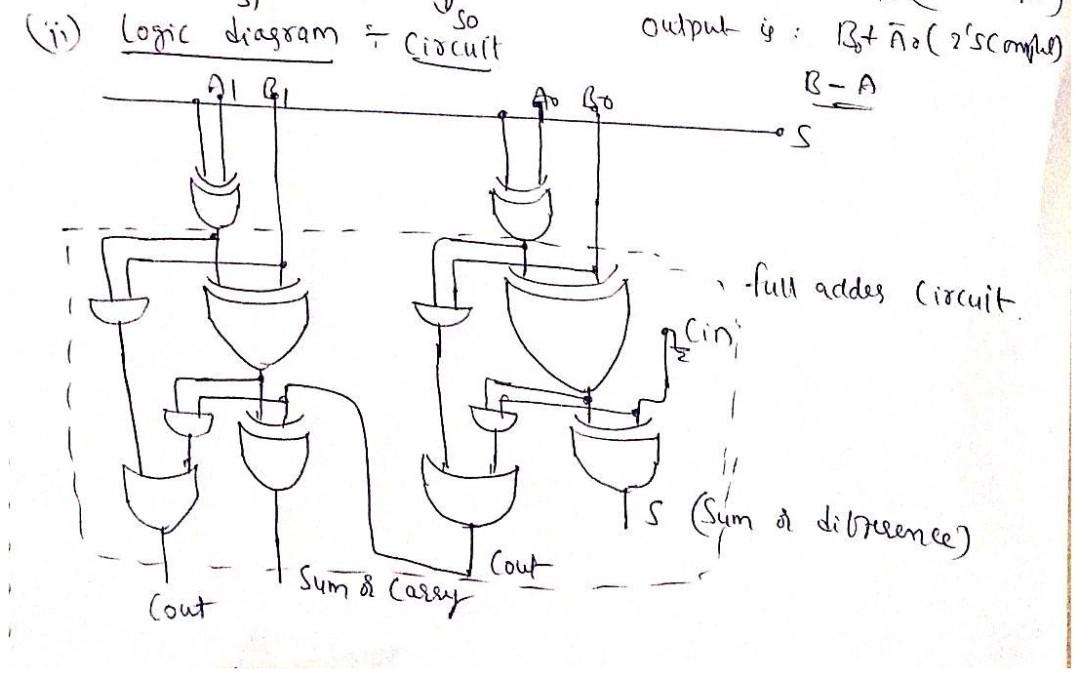 (ii) Logic diagram ÷ Circuit
So
output is : B0 + Ā0 ( 2's Compl)
B - A
A1 B1
A0 B0
S
full adder Circuit.
Cin
S (Sum or difference)
Cout
Sum or Carry
Cout